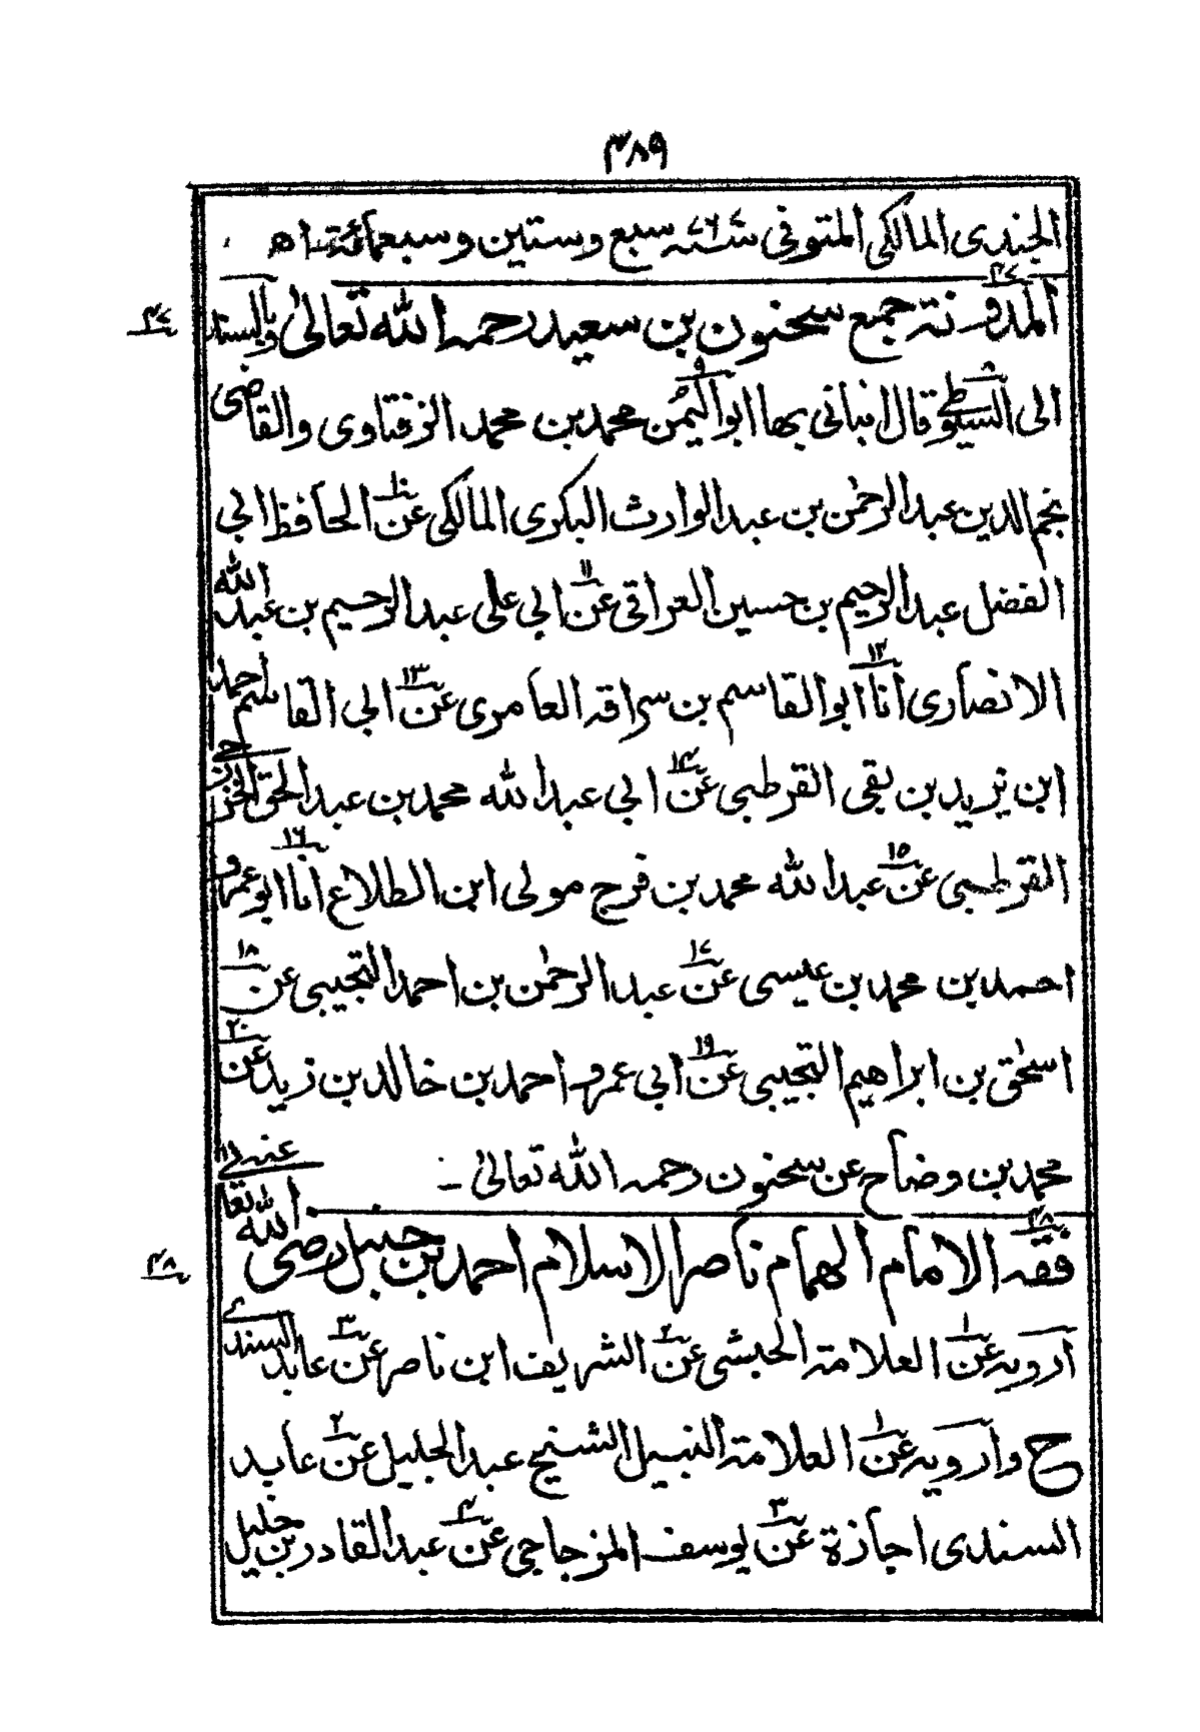 ٣٨٩
الجندى المالكى المتوفى ٧٦٧سنة سبع وستين وسبعمائة اھ
٤٧ المدونة جمع سحنون بن سعيد رحمه الله تعالىٰ وبالسند
٤٧
الى السيوطى٨ قال انبانى بها ابو اليُمن٩ محمد بن محمد الزفتاوى والقاضى
نجم الدين عبد الرحمٰن بن عبد الوارث البكرى المالكى عن١٠ الحافظ ابى
الفضل عبد الرحيم بن حسين العراقى عن١١ ابى على عبد الرحيم بن عبد الله
الانصارى انا١٢ ابو القاسم بن سراقه العامرى عن١٣ ابى القاسم احمد
ابن يزيد بن بقى القرطبى عن١٤ ابى عبد الله محمد بن عبد الحق الخزرجى
القرطبى عن١٥ عبد الله محمد بن فرج مولى ابن الطلاع انا١٦ ابو عمرو
احمد بن محمد بن عيسى عن١٧ عبد الرحمٰن بن احمد التجيبى عن١٨
اسحٰق بن ابراهيم التجيبى عن١٩ ابى عمرو احمد بن خالد بن زيد عن٢٠
محمد بن وضاح عن سحنون رحمه الله تعالىٰ ـ:
٤٨ فقه الامام الهمام ناصر الاسلام احمد بن حنبل رضى الله تعالى عنه
٤٨
آرويه عن١ العلامة الحبشى عن٢ الشريف ابن ناصر عن٣ عابد السندى
ح وآرويه عن١ العلامة النبيل الشيخ عبد الجليل عن٢ عابد
السندى اجازة عن٣ يوسف المزجاجى عن٤ عبد القادر بن خليل